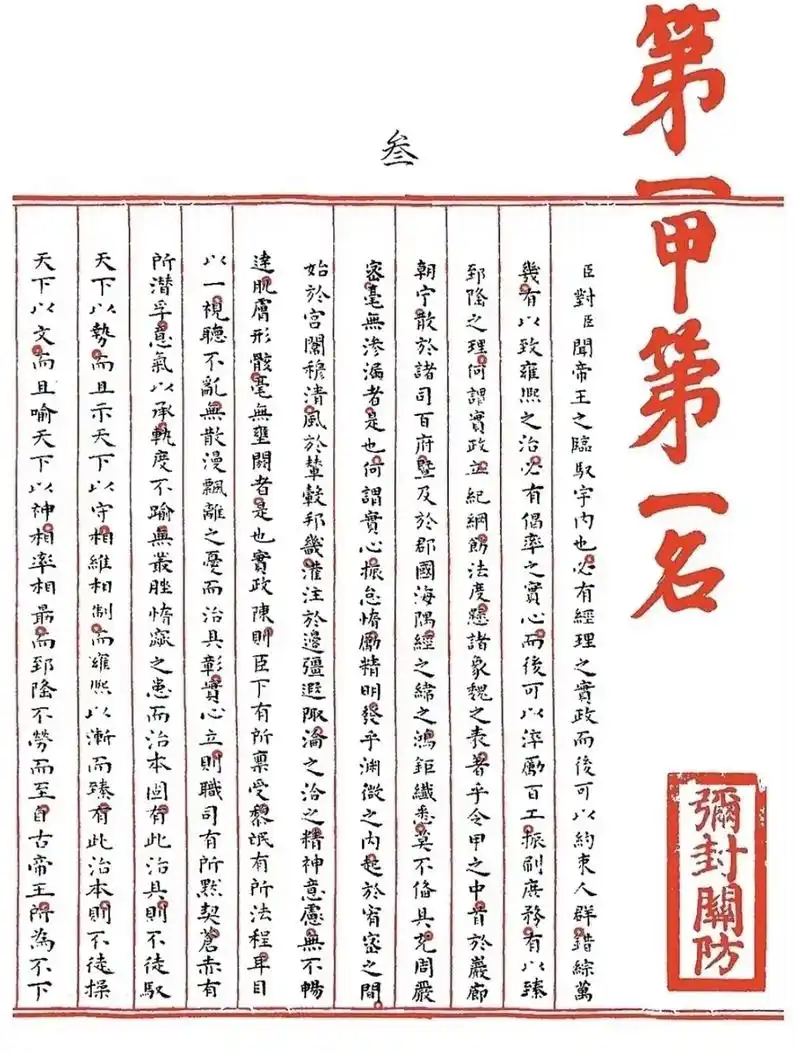 第一甲第一名
彌封關防
叁
臣對臣聞帝王之臨馭宇內也必有經理之實政而後可以約束人群錯綜萬
幾有以致雍熙之治必有倡率之實心而後可以淬勵百工振刷庶務有以臻
郅隆之理何謂實政立紀綱飭法度懸諸象魏之表著乎令甲之中首於巖廊
朝宁散於諸司百府暨及於郡國海隅經之緯之鴻鉅纖悉莫不俻具充周嚴
密毫無滲漏者是也何謂實心振怠惰勵精明發乎淵微之內起於宥密之間
始於宮闈穆清風於輦轂邦畿灌注於邊疆遐陬淪之洽之精神意慮無不暢
達肌膚形骸毫無壅閼者是也實政陳則臣下有所稟受黎氓有所法程耳目
以一視聽不亂無散漫飄離之憂而治具彰實心立則職司有所默契蒼赤有
所潛孚意氣以承軌度不踰無叢脞惰窳之患而治本固有此治具則不徒馭
天下以勢而且示天下以守相維相制而雍熙以漸而臻有此治本則不徒操
天下以文而且喻天下以神相率相朂而郅隆不勞而至自古帝王所為不下